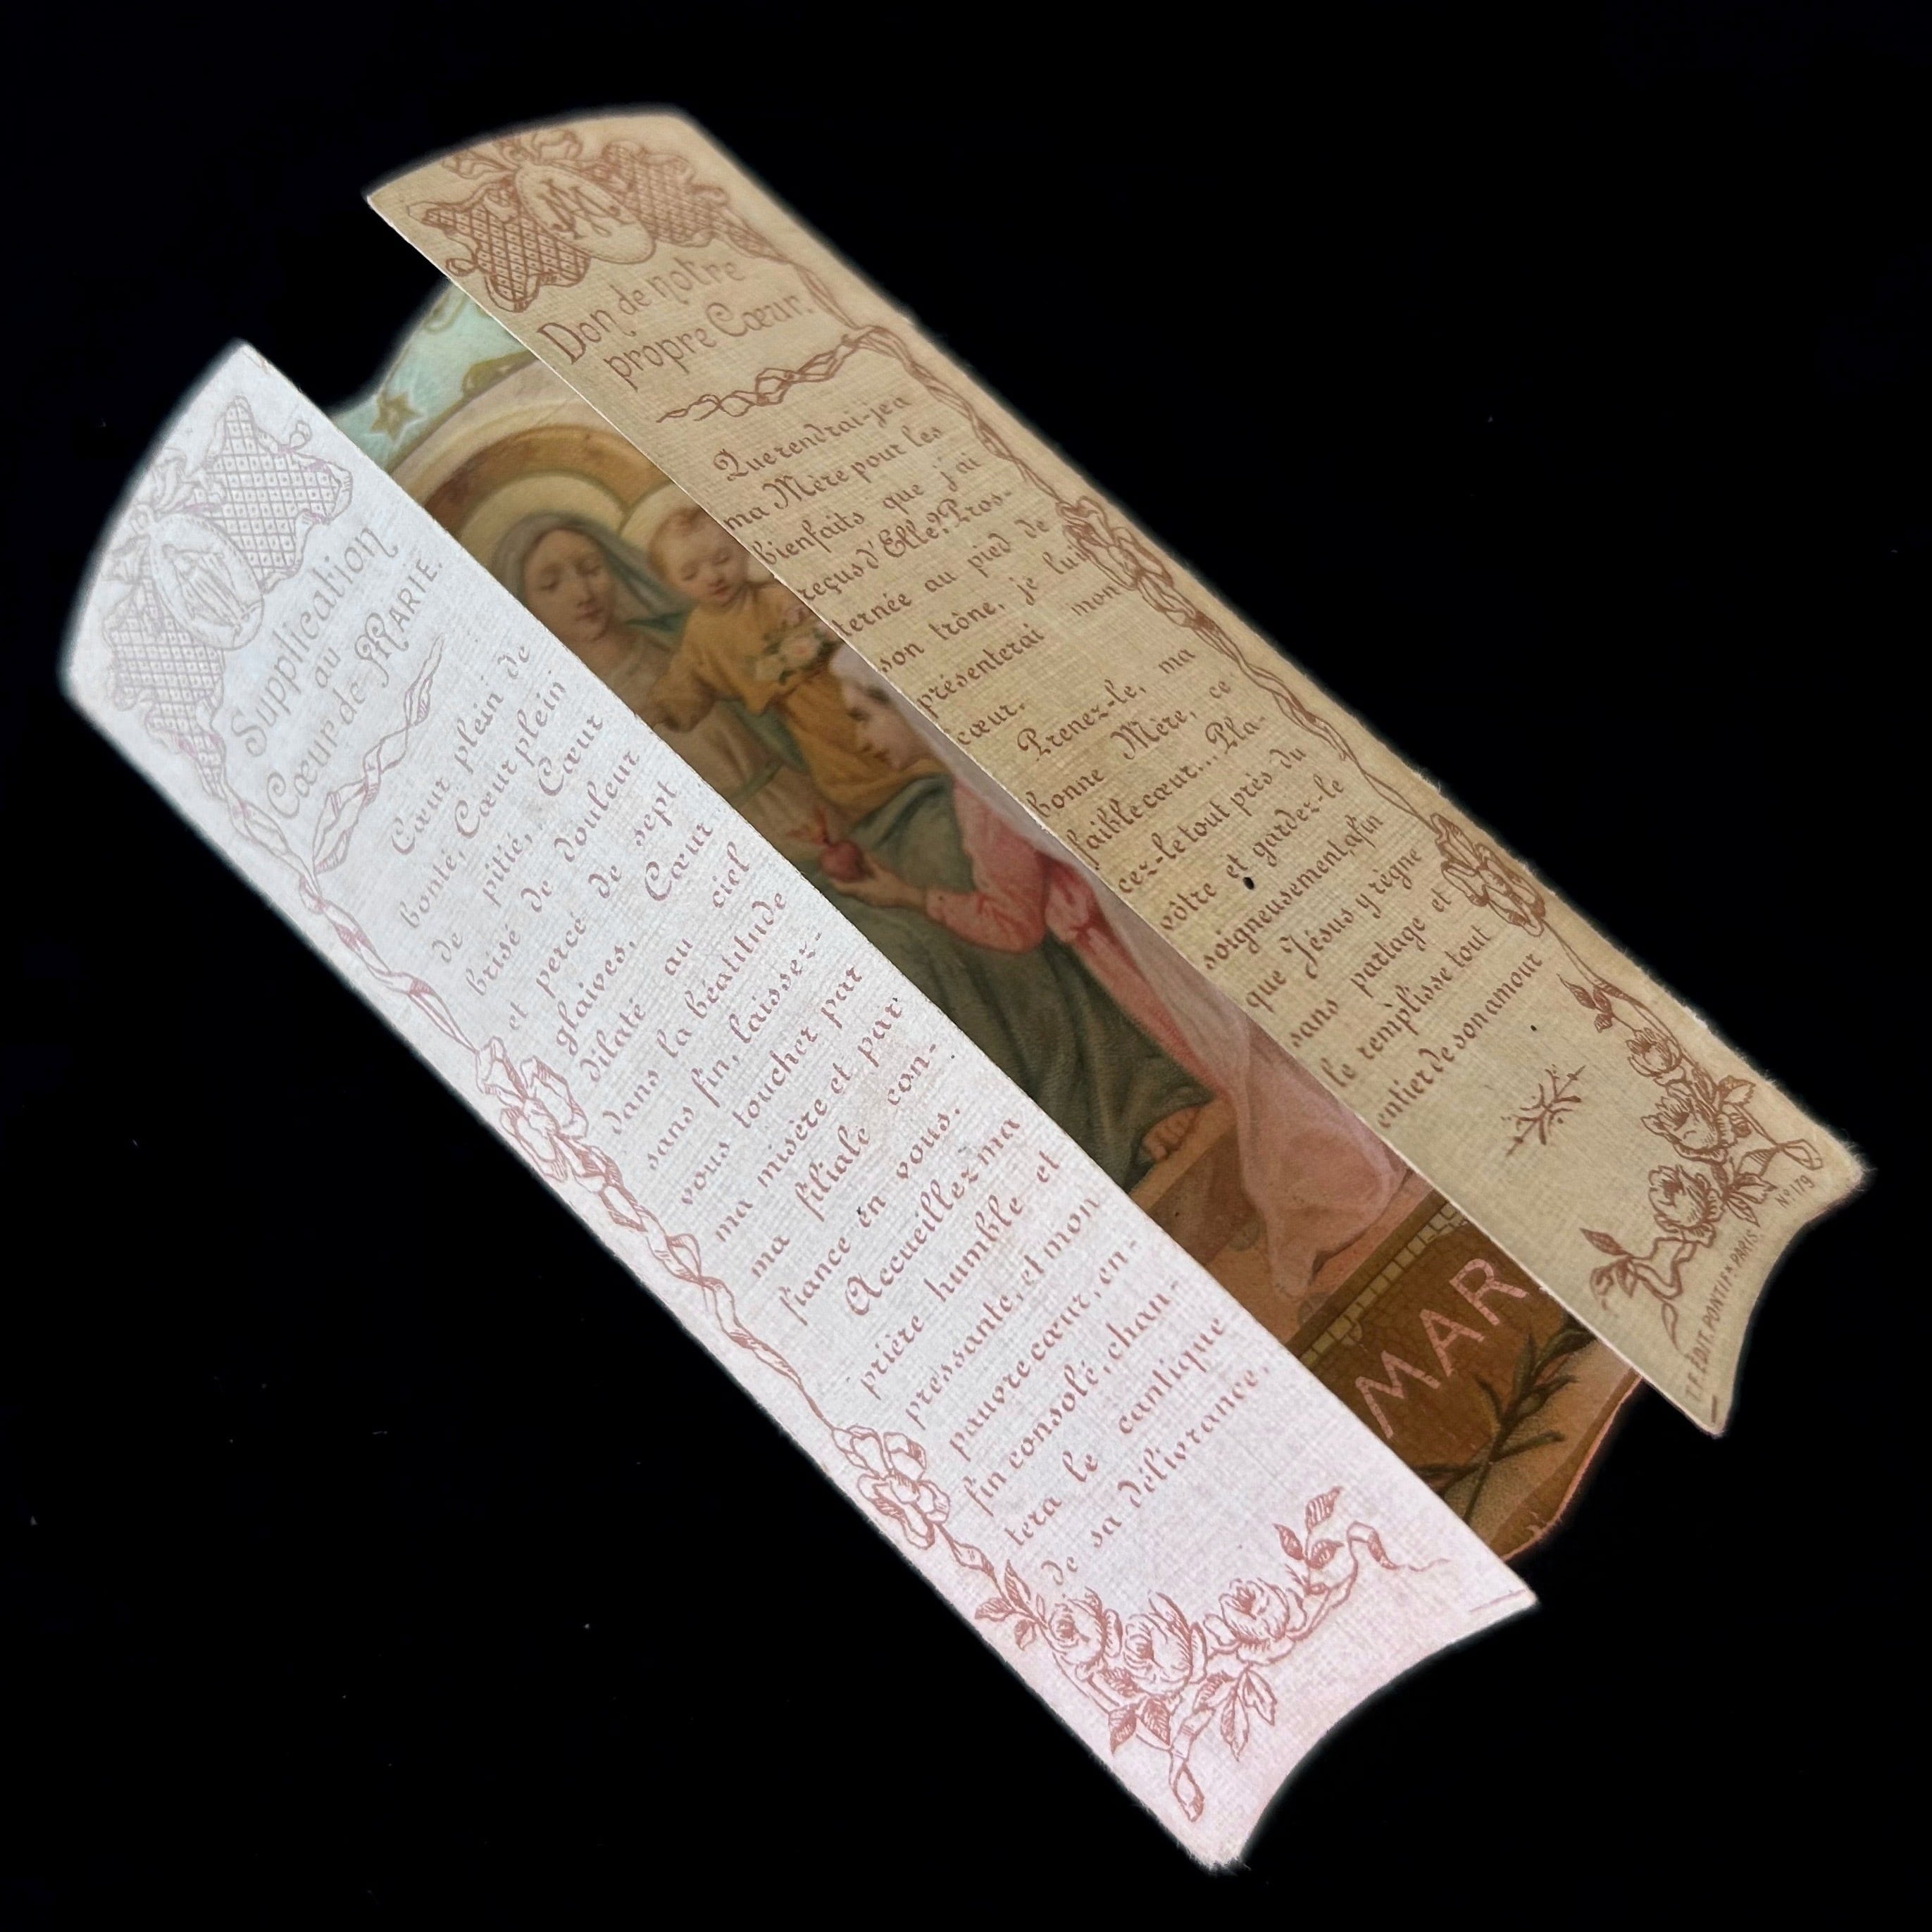 Supplication
au
Cœur de MARIE.
Cœur plein de
bonté, Cœur plein
de pitié, Cœur
brisé de douleur
et percé de sept
glaives, Cœur
dilaté au ciel
dans la béatitude
sans fin, laissez-
vous toucher par
ma misère et par
ma filiale con-
fiance en vous.
Accueillez ma
prière humble et
pressante, et mon
pauvre cœur, en-
fin consolé, chan-
tera le cantique
de sa délivrance.
Don de notre
propre Cœur.
Que rendrai-je à
ma Mère pour les
bienfaits que j'ai
reçus d'Elle? Pros-
ternée au pied de
son trône, je lui
présenterai mon
cœur.
Prenez-le, ma
bonne Mère, ce
faible cœur... Pla-
cez-le tout près du
vôtre et gardez-le
soigneusement, afin
que Jésus y règne
sans partage et
le remplisse tout
entier de son amour
Nº 179
ÉDIT. PONTIF. PARIS
MAR